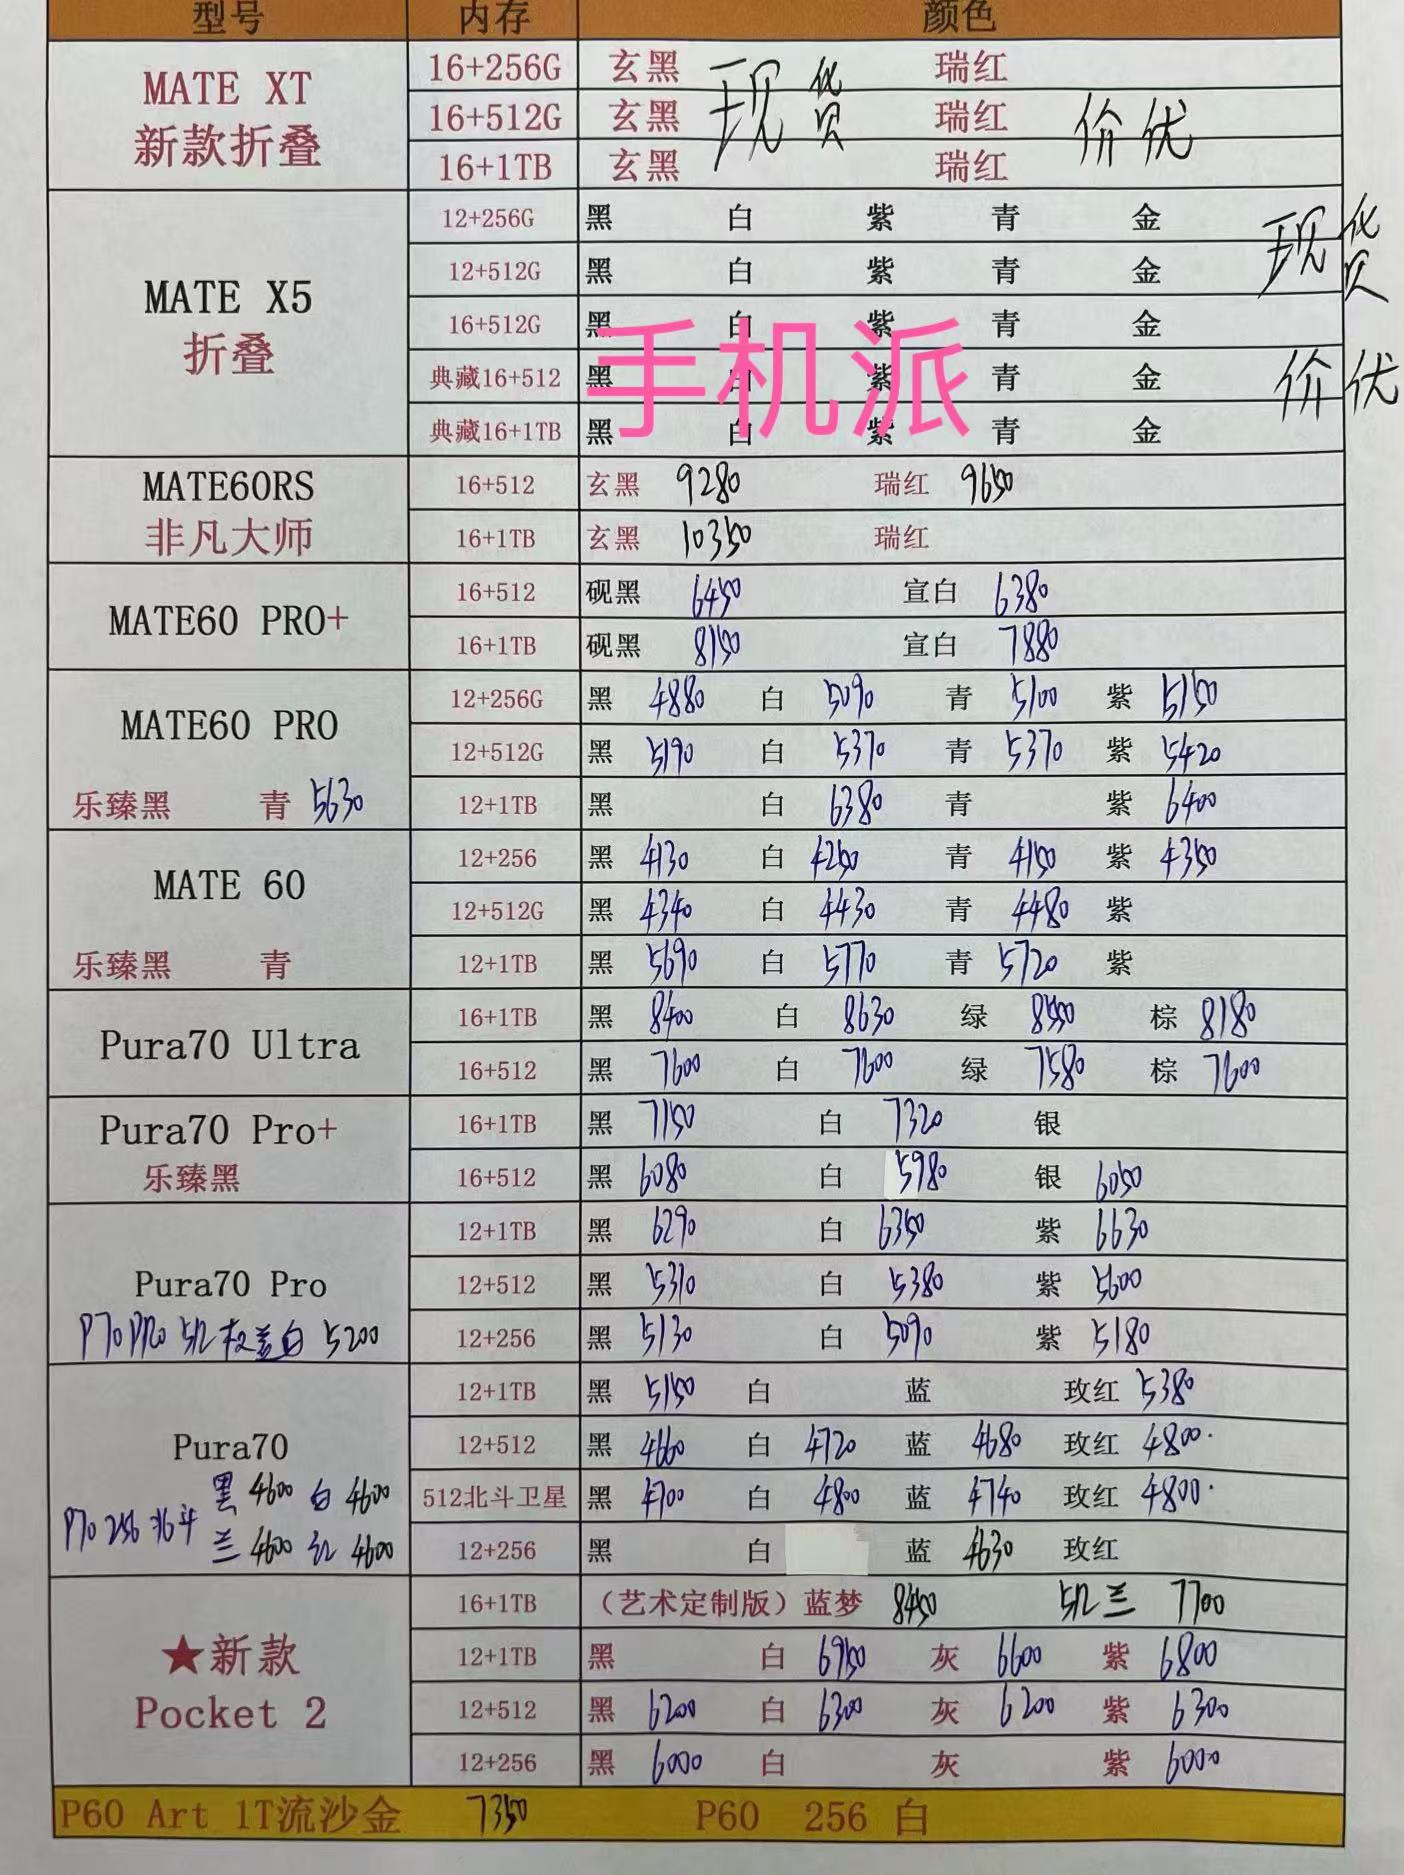 型号 内存 颜色
MATE XT
新款折叠
16+256G 玄黑 瑞红
16+512G 玄黑 瑞红
16+1TB 玄黑 瑞红
现货 价优
MATE X5
折叠
12+256G 黑 白 紫 青 金
12+512G 黑 白 紫 青 金
16+512G 黑 白 紫 青 金
典藏16+512 黑 白 紫 青 金
典藏16+1TB 黑 白 紫 青 金
现货
价优
手机派
MATE60RS
非凡大师
16+512 玄黑 9280 瑞红 9650
16+1TB 玄黑 10350 瑞红
MATE60 PRO+
16+512 砚黑 6450 宣白 6380
16+1TB 砚黑 8150 宣白 7880
MATE60 PRO
乐臻黑 青 5630
12+256G 黑 4880 白 5090 青 5100 紫 5150
12+512G 黑 5190 白 5370 青 5370 紫 5420
12+1TB 黑 白 6380 青 紫 6400
MATE 60
乐臻黑 青
12+256 黑 4130 白 4250 青 4150 紫 4350
12+512G 黑 4340 白 4430 青 4480 紫
12+1TB 黑 5690 白 5770 青 5720 紫
Pura70 Ultra
16+1TB 黑 8400 白 8630 绿 8550 棕 8180
16+512 黑 7600 白 7600 绿 7580 棕 7600
Pura70 Pro+
乐臻黑
16+1TB 黑 7150 白 7320 银
16+512 黑 6080 白 5980 银 6050
Pura70 Pro
P70 PRO 512 白 5200
12+1TB 黑 6290 白 6350 紫 6630
12+512 黑 5310 白 5380 紫 5600
12+256 黑 5130 白 5090 紫 5180
Pura70
黑 4600 白 4600
P70 256 北斗
兰 4600 红 4600
12+1TB 黑 5150 白 蓝 玫红 5380
12+512 黑 4660 白 4720 蓝 4680 玫红 4800
512北斗卫星 黑 4700 白 4800 蓝 4740 玫红 4800
12+256 黑 白 蓝 4630 玫红
★新款
Pocket 2
16+1TB (艺术定制版)蓝梦 8450 512 兰 7700
12+1TB 黑 白 6950 灰 6600 紫 6800
12+512 黑 6200 白 6300 灰 6200 紫 6300
12+256 黑 6000 白 灰 紫 6000
P60 Art 1T流沙金 7350 P60 256 白